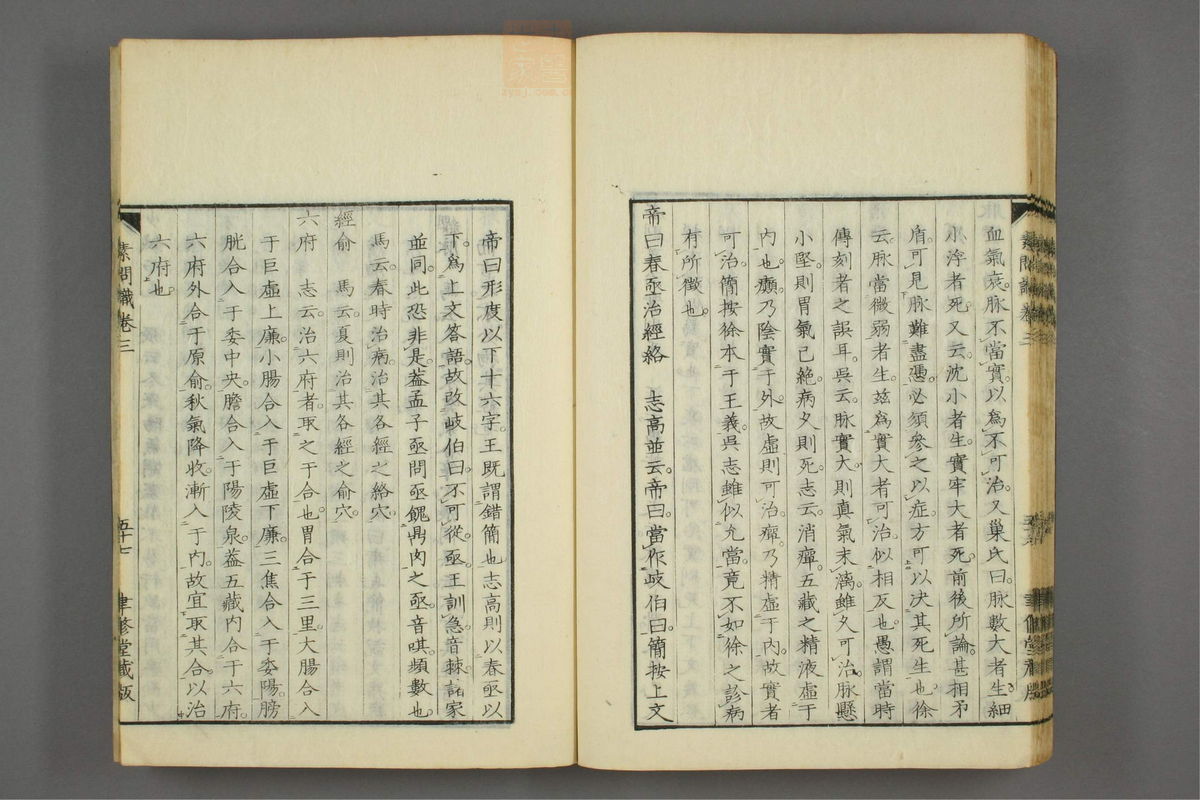 血氣衰脉不當實以為不可治又巢氏曰脉數大者生細
小浮者死又云沈小者生實牢大者死前後所論甚相矛
盾可見脉難盡憑必須參之以症方可以决其死生也徐
云脉當微弱者生兹為實大者可治似相反也愚謂當時
傳刻者之誤耳吳云脉實大則真氣未漓雖久可治脉懸
小堅則胃氣已絶病久則死志云消癉五藏之精液虛于
內也癲乃陰實于外故虛則可治癉乃精虛于內故實者
可治簡按徐本于王義吳志雖似允當竟不如徐之彭病
有所徵也
帝曰春亟治經絡　志高並云帝曰當作岐伯曰簡按上文
帝曰形度以下十六字王既謂錯簡也志高則以春亟以
下為上文答語故改岐伯曰不可從亟王訓急音棘諸家
並同此恐非是葢孟子亟問亟餽鼎肉之亟音唭頻數也
馬云春時治病治其各經之絡穴
經俞　馬云夏則治其各經之俞穴
六府　志云治六府者取之于合也胃合于三里大腸合入
于巨虛上廉小腸合入于巨虛下廉三焦合入于委陽膀
胱合入于委中央膽合入于陽陵泉葢五藏內合于六府
六府外合于原俞秋氣降收漸入于內故宜取其合以治
六府也
素問識卷三
五十七
聿修堂藏版